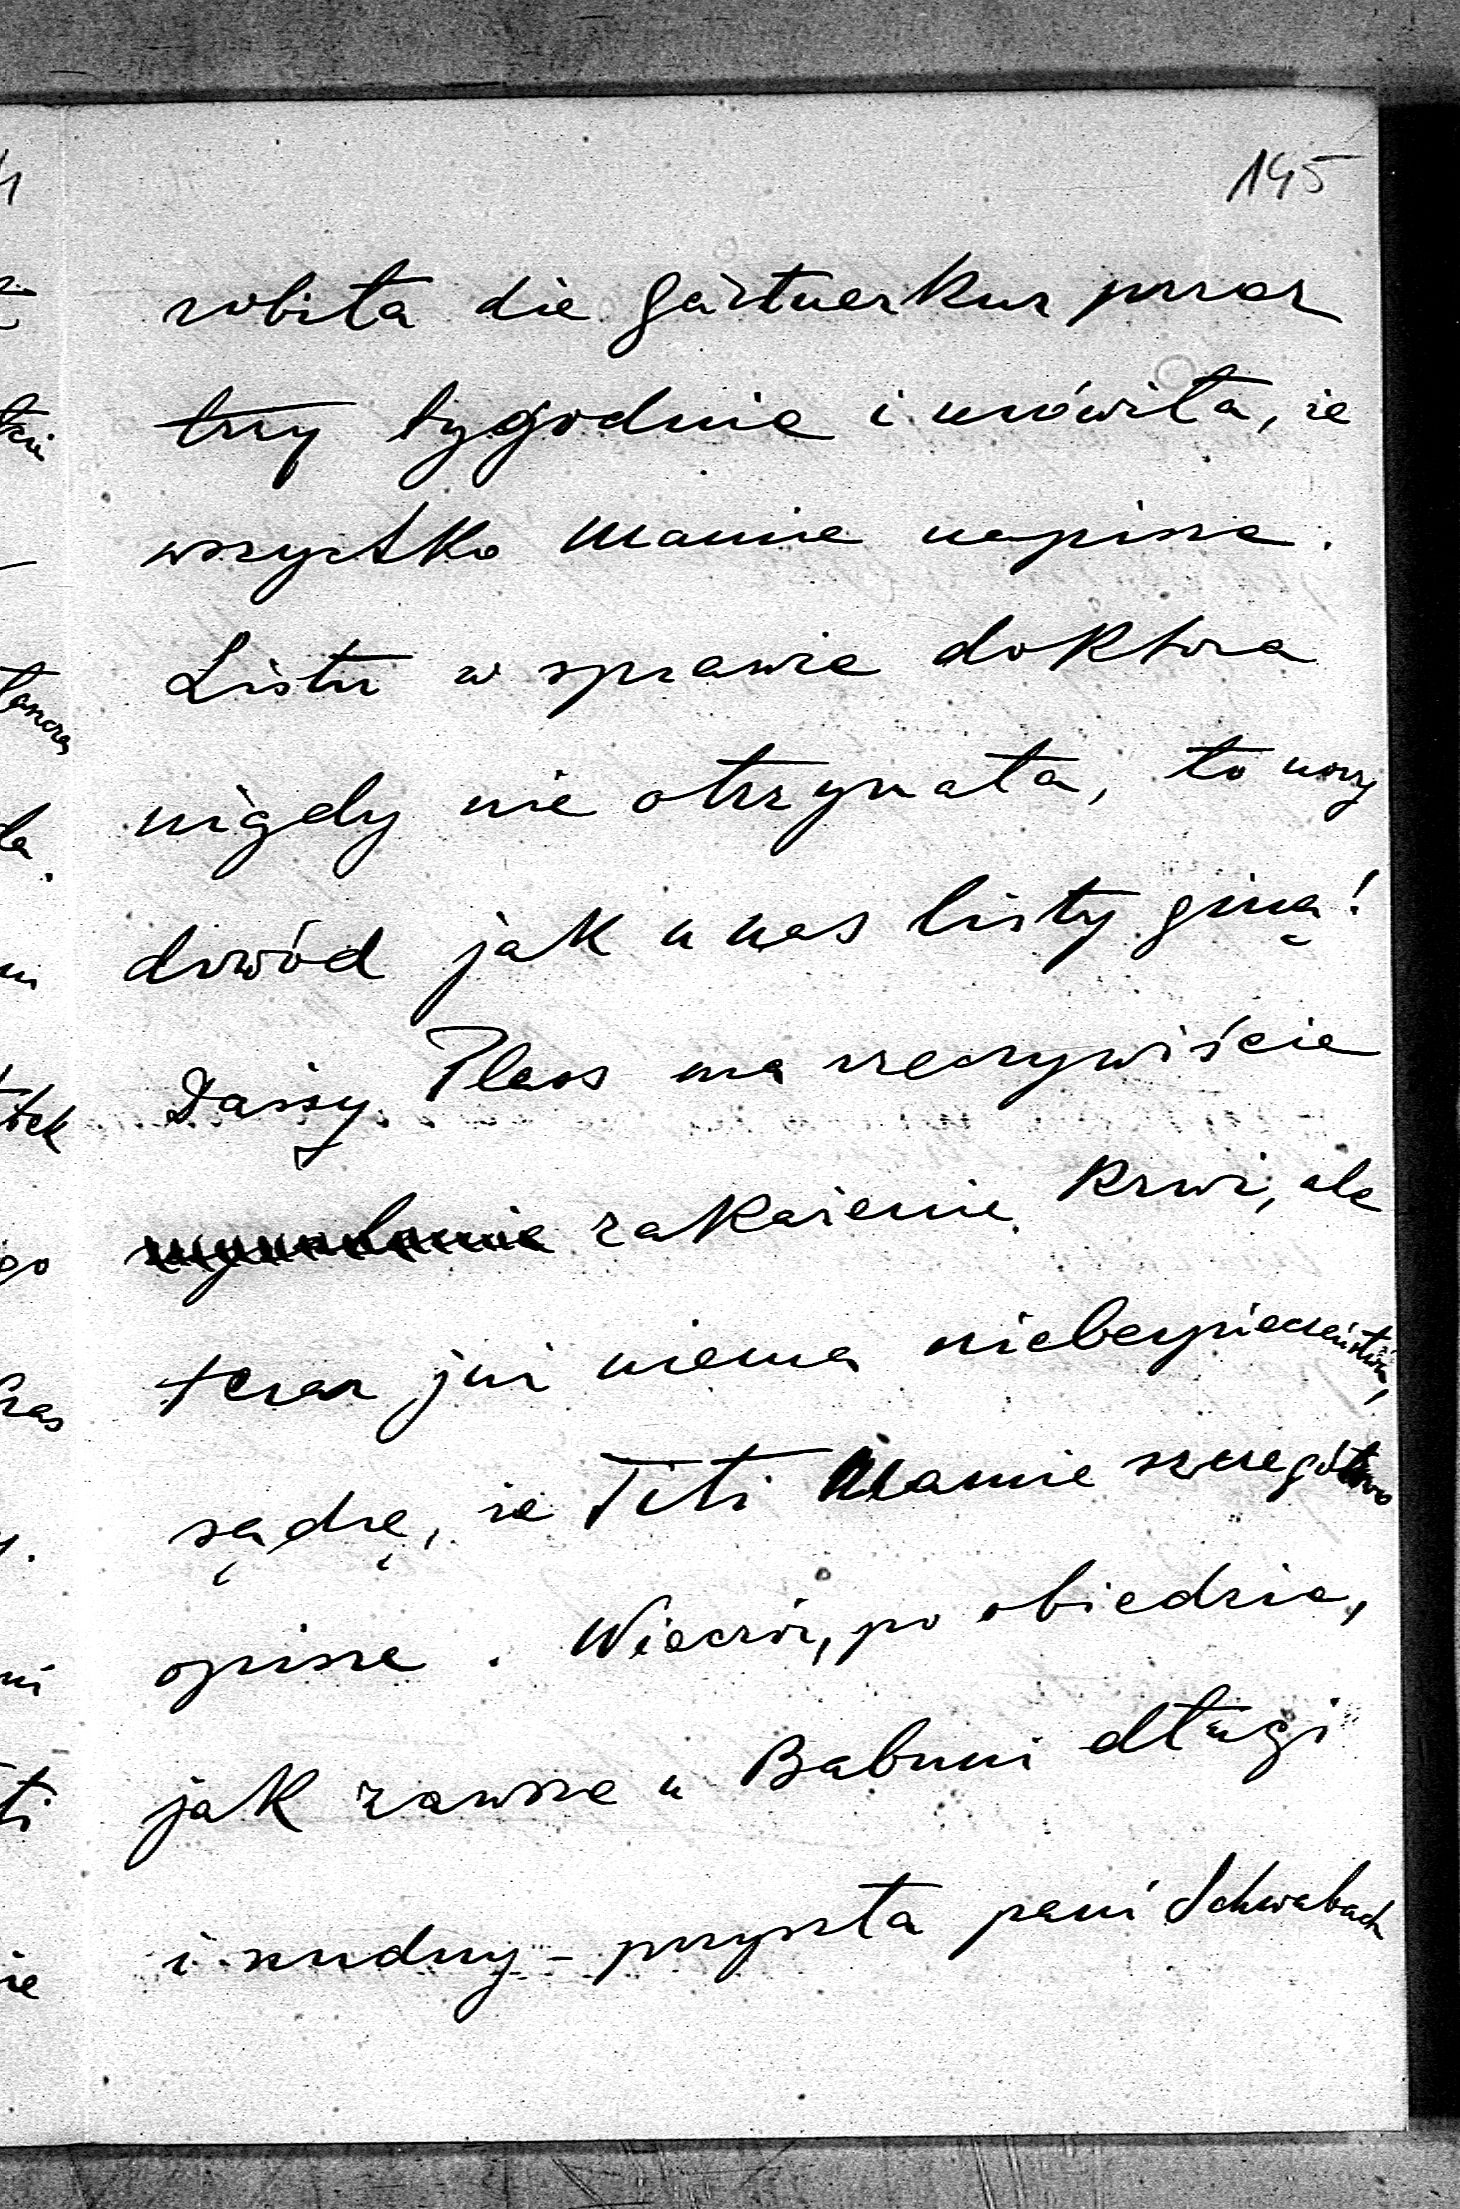 145
robiła die Gärtnerkur przez
trzy tygodnie i mówiła, że
wszystko Mamie napisze.
Listu w sprawie doktora
nigdy nie otrzymała, to nowy
dowód jak u nas listy giną!
Daisy Pless ma rzeczywiście
zakażenie krwi, ale
teraz już niema niebezpieczeństwa,
sądzę, że Titi Mamie szczegółowo
opisze. Wieczór, po obiedzie,
jak zawsze u Babuni długi
i nudny – przyszła pani Schwabach